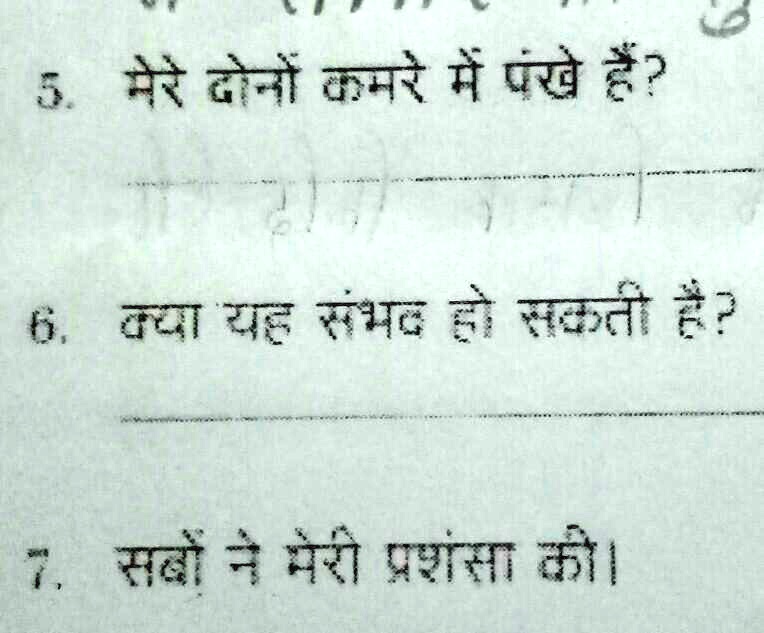 5. मेरे दोनों कमरे में पंखे हैं?
6. क्या यह संभव हो सकती है?
7. सबों ने मेरी प्रशंसा की।